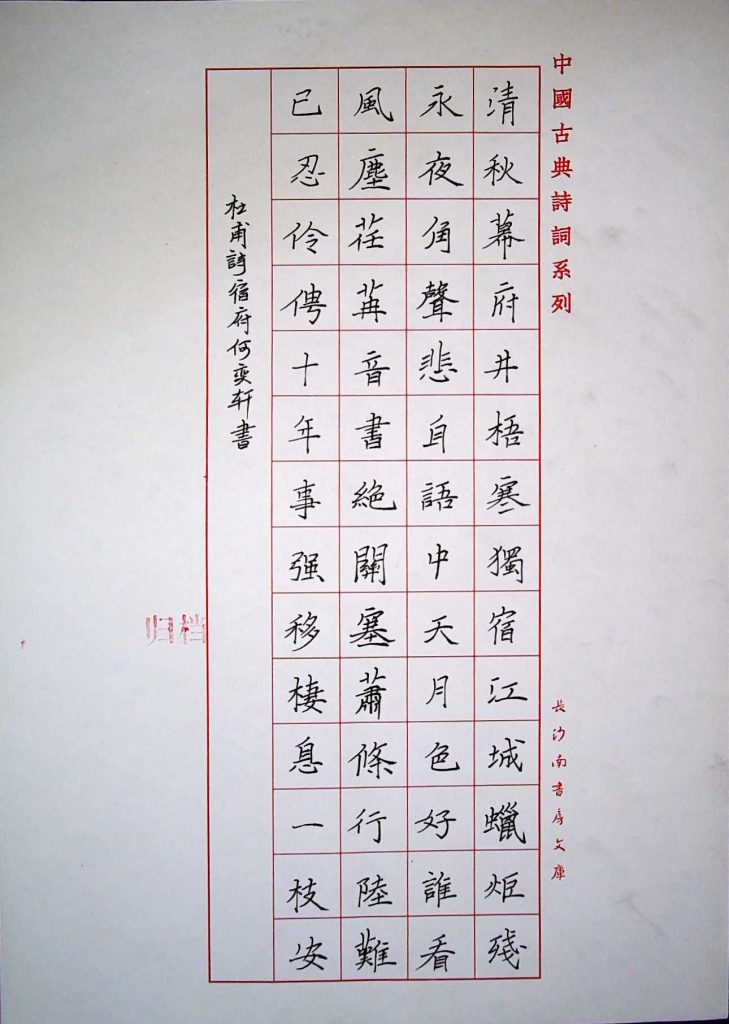 中國古典詩詞系列
清秋幕府井梧寒獨宿江城蠟炬殘
永夜角聲悲自語中天月色好誰看
風塵荏苒音書絕關塞蕭條行陸難
已忍伶俜十年事强移棲息一枝安
杜甫詩宿府何奕轩書
長沙南書房文庫
归档